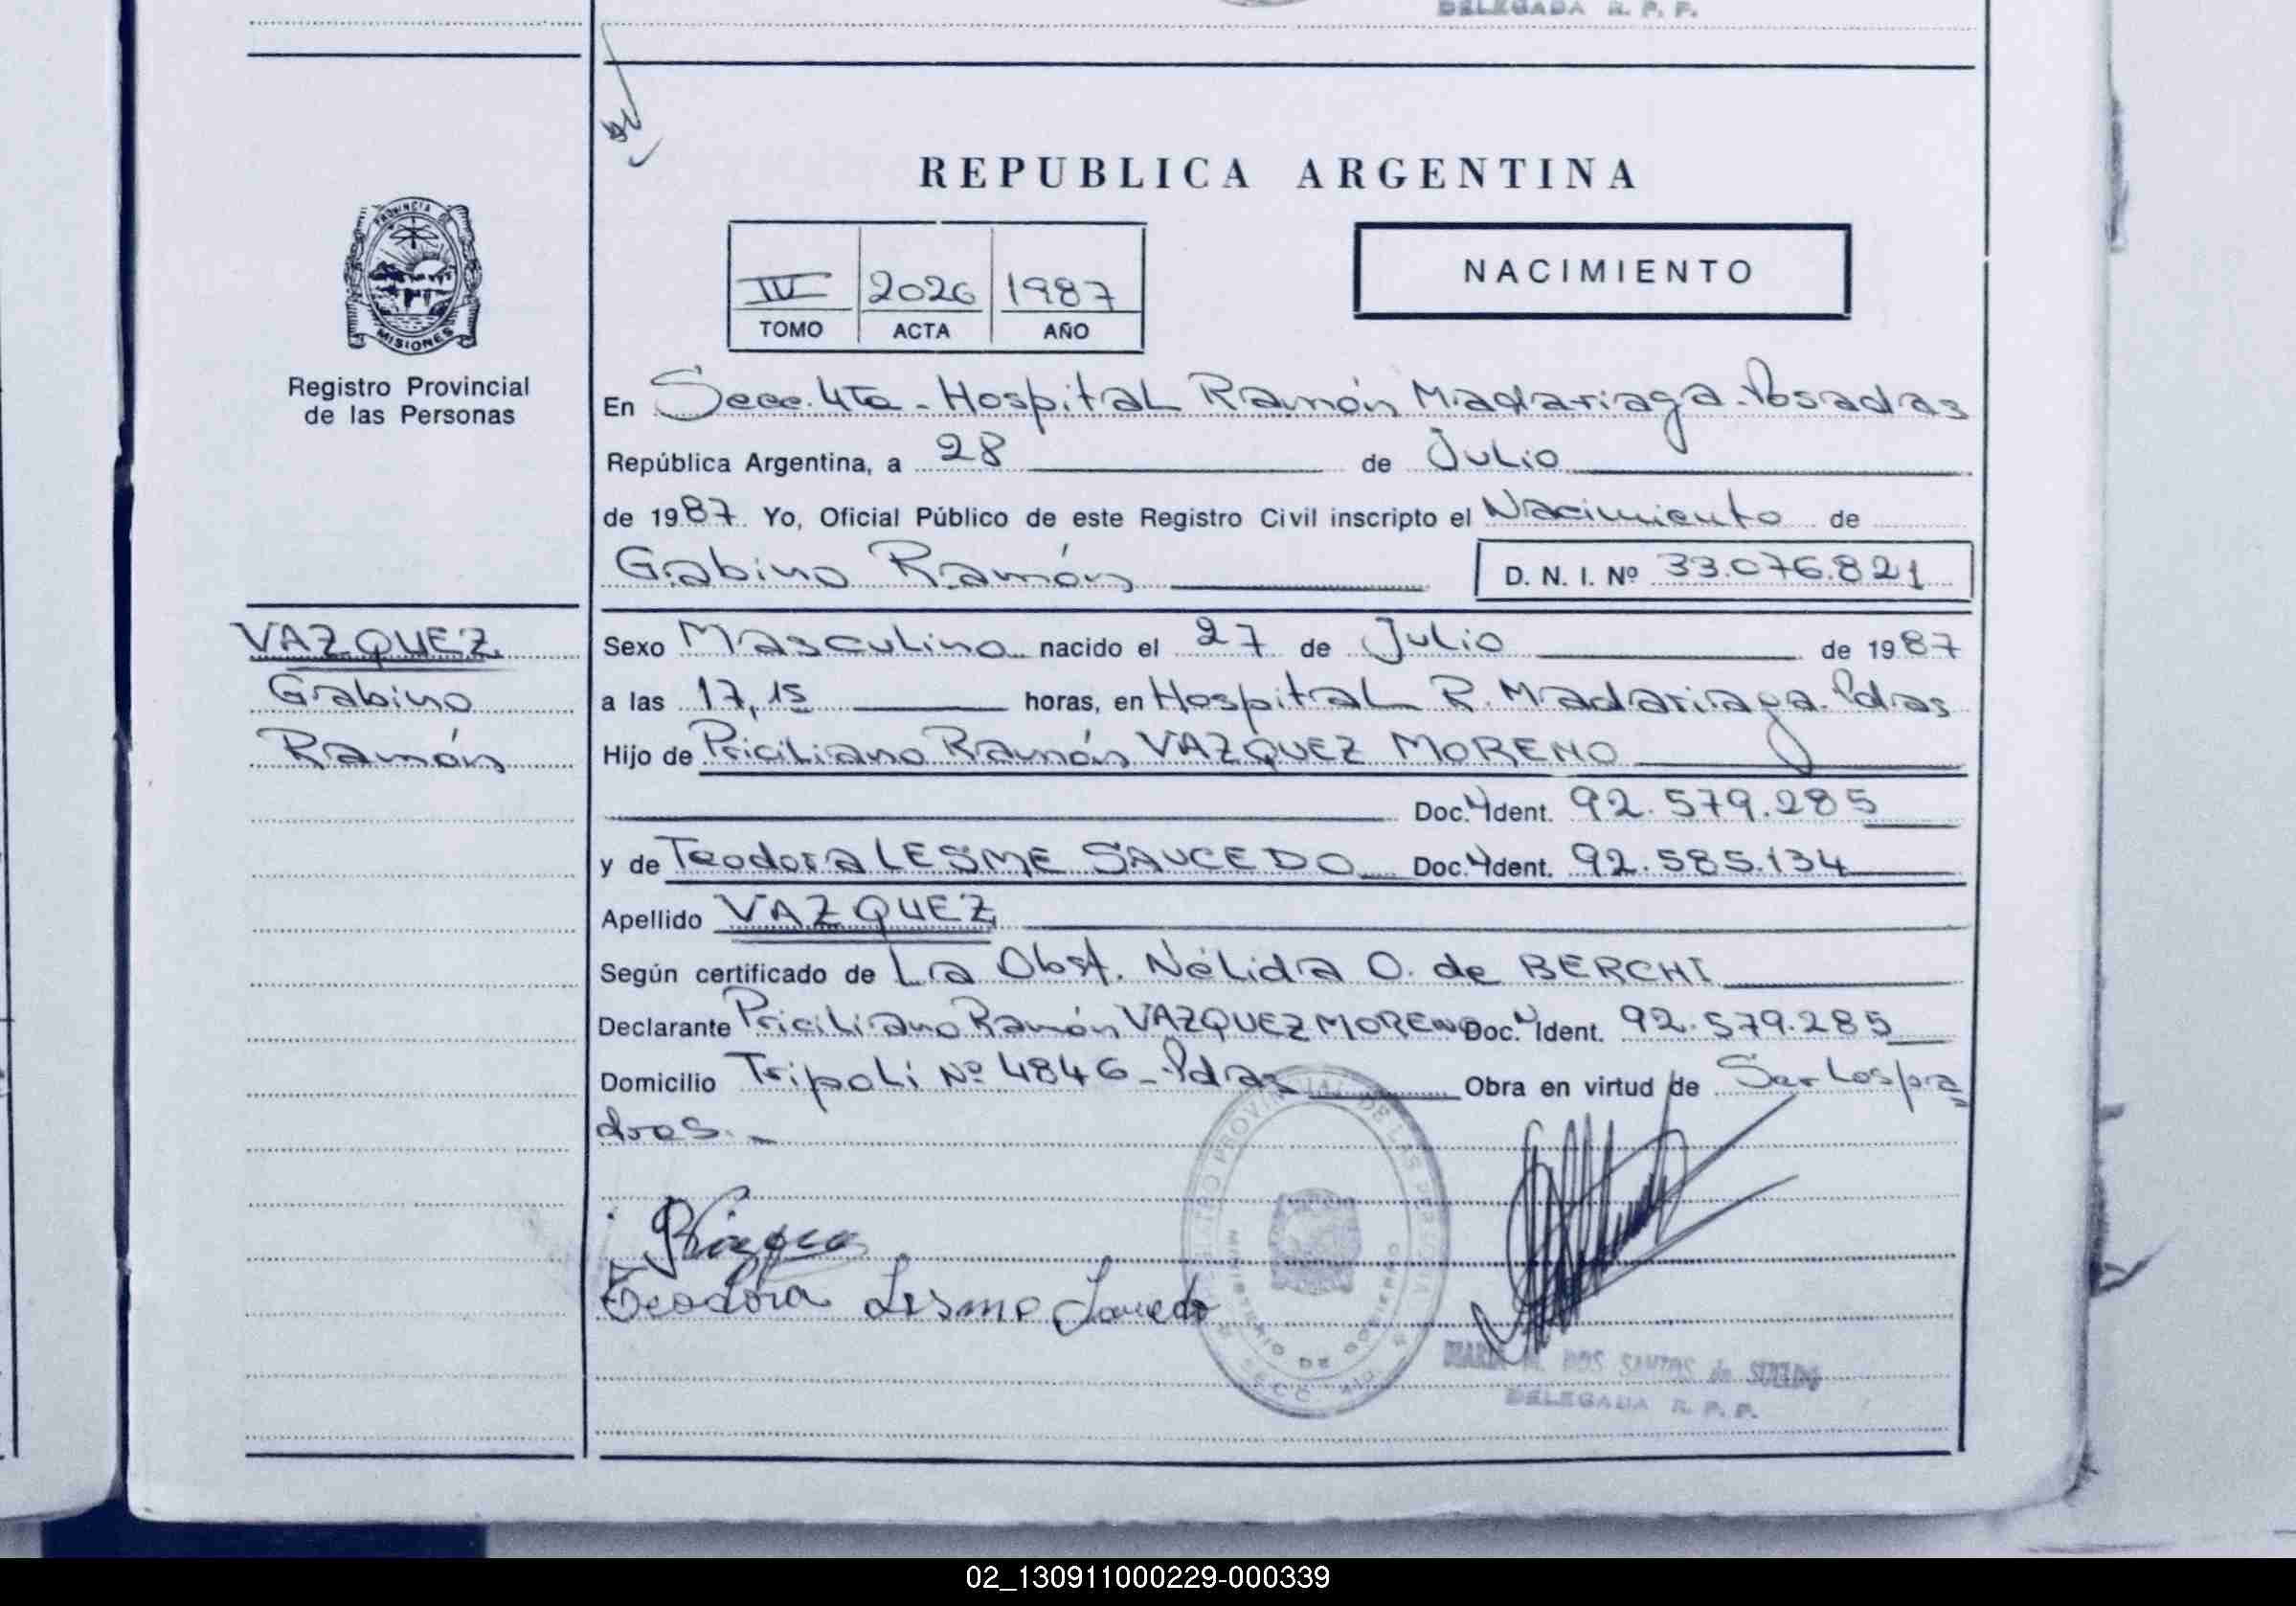 DELEGADA R. P. P.
REPUBLICA ARGENTINA
PROVINCIA DE
MISIONES
Registro Provincial
de las Personas
IV 2026 1987
TOMO ACTA AÑO
NACIMIENTO
En Secc. 4ta - Hospital Ramón Madariaga - Posadas
República Argentina, a 28 de Julio
de 1987 Yo, Oficial Público de este Registro Civil inscripto el Nacimiento de
Gabino Ramón D. N. I. Nº 33.076.821
VAZQUEZ
Gabino
Ramón
Sexo Masculino nacido el 27 de Julio de 1987
a las 17,15 horas, en Hospital R. Madariaga - Pdas
Hijo de Priciliano Ramón VAZQUEZ MORENO
Doc. Ident. 92.579.285
y de Teodora LESME SAUCEDO Doc. Ident. 92.585.134
Apellido VAZQUEZ
Según certificado de La Obst. Nélida O. de BERCHI
Declarante Priciliano Ramón VAZQUEZ MORENO Doc. Ident. 92.579.285
Domicilio Tripoli Nº 4846 - Pdas Obra en virtud de Ser los pa
dres. -
Teodora Lesme Saucedo
REGISTRO PROVINCIAL DE LAS PERSONAS
MINISTERIO DE GOBIERNO
SECC. 4ta
MARIA M. DOS SANTOS de SUELDO
DELEGADA R. P. P.
02_130911000229-000339